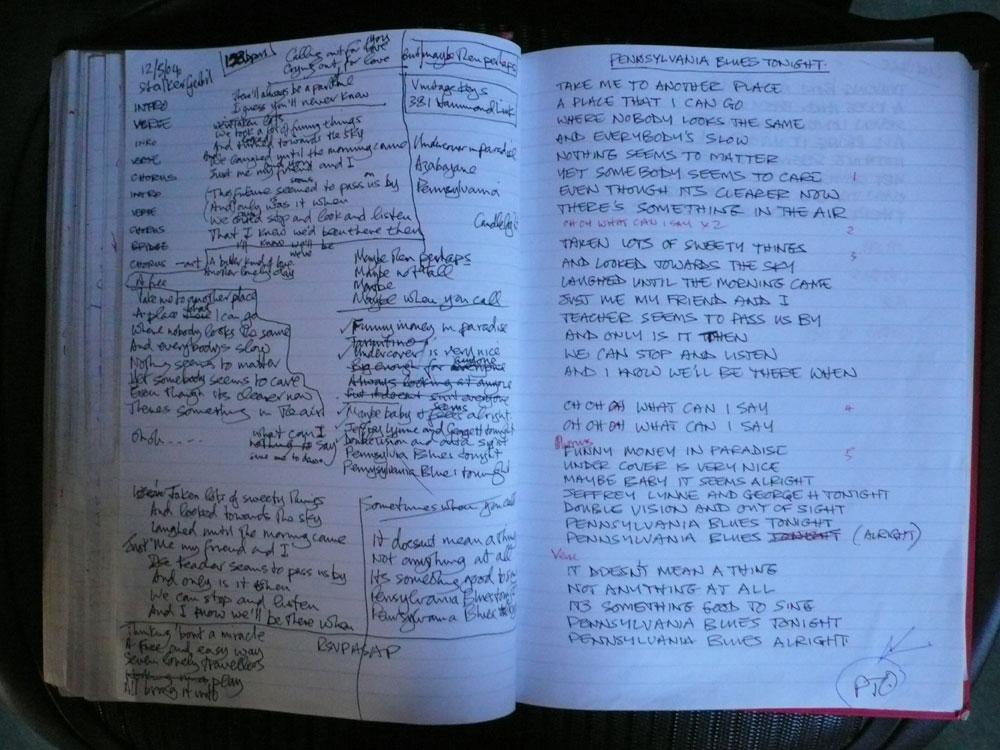 12/5/04
158bpm
INTRO
VERSE
INTRO
VERSE
CHORUS
INTRO
VERSE
CHORUS
BRIDGE
CHORUS
Calling out for love
you
Crying out for love
I guess you'll never know
We took a lot of funny things
And looked towards the sky
We laughed until the morning came
Just me my friend and I
The future seemed to pass us by
And only was it when
We could stop and look and listen
That I knew we'd been there then
Another lonely day
But maybe Ren perhaps
Vintage Keys
3B1 Hammond Link
Undercover in paradise
Azabayane
Pennsylvania
Maybe Ren perhaps
Maybe not at all
Maybe
Maybe when you call
A free
Take me to another place
A place that I can go
Where nobody looks the same
And everybody's slow
Nothing seems to matter
Yet somebody seems to care
Even though its clearer now
Theres something in the air
Ohoh.....
what can I
nothing to say
Funny money in paradise
Undercover is very nice
Big enough for everyone
anyone
Always looking at anyone
But it doesnt suit everyone
Maybe baby it feels alright
seems
Jeffrey Lynne and George H tonight
Double vision and outta sight
Pennsylvia Blues tonight
Pennysylvania Blues tonight
Taken lots of sweety things
And looked towards the sky
Laughed until the morning came
Just Me my friend and I
The teacher seems to pass us by
And only is it when
We can stop and listen
And I know we'll be there when
Sometimes when you call
It doesnt mean a thing
Not anything at all
Its something good to sing
Pensylvania Blues tonight
Pensylvania Blues
Thinking 'bout a miracle
A free and easy way
Seven lonely travellers
play
All bring it into
RSVPASAP
PENNSYLVANIA BLUES TONIGHT.
TAKE ME TO ANOTHER PLACE
A PLACE THAT I CAN GO
WHERE NOBODY LOOKS THE SAME
AND EVERYBODY'S SLOW
NOTHING SEEMS TO MATTER
YET SOMEBODY SEEMS TO CARE 1
EVEN THOUGH ITS CLEARER NOW
THERE'S SOMETHING IN THE AIR
OH OH WHAT CAN I SAY x2 2
TAKEN LOTS OF SWEETY THINGS
AND LOOKED TOWARDS THE SKY 3
LAUGHED UNTIL THE MORNING CAME
JUST ME MY FRIEND AND I
TEACHER SEEMS TO PASS US BY
AND ONLY IS IT THEN
WE CAN STOP AND LISTEN
AND I KNOW WE'LL BE THERE WHEN
OH OH OH WHAT CAN I SAY 4
OH OH OH WHAT CAN I SAY
FUNNY MONEY IN PARADISE 5
UNDER COVER IS VERY NICE
MAYBE BABY IT SEEMS ALRIGHT
JEFFREY LYNNE AND GEORGE H TONIGHT
DOUBLE VISION AND OUT OF SIGHT
PENNSYLVANIA BLUES TONIGHT
PENNSYLVANIA BLUES TONIGHT (ALRIGHT)
Verse
IT DOESN'T MEAN A THING
NOT ANYTHING AT ALL
ITS SOMETHING GOOD TO SING
PENNSYLVANIA BLUES TONIGHT
PENNSYLVANIA BLUES ALRIGHT
PTO